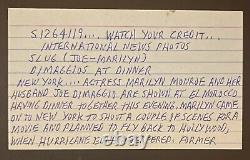 S1264119... WATCH YOUR CREDIT...
INTERNATIONAL NEWS PHOTOS
SLUG (JOE-MARILYN)
DIMAGGIOS AT DINNER
NEW YORK.... ACTRESS MARILYN MONROE AND HER
HUSBAND JOE DIMAGGIO ARE SHOWN AT EL MOROCCO
HAVING DINNER TOGETHER THIS EVENING. MARILYN CAME
ON TO NEW YORK TO SHOOT A COUPLE OF SCENES FOR A
MOVIE AND PLANNED TO FLY BACK TO HOLLYWOOD,
WHEN HURRICANE FORMER